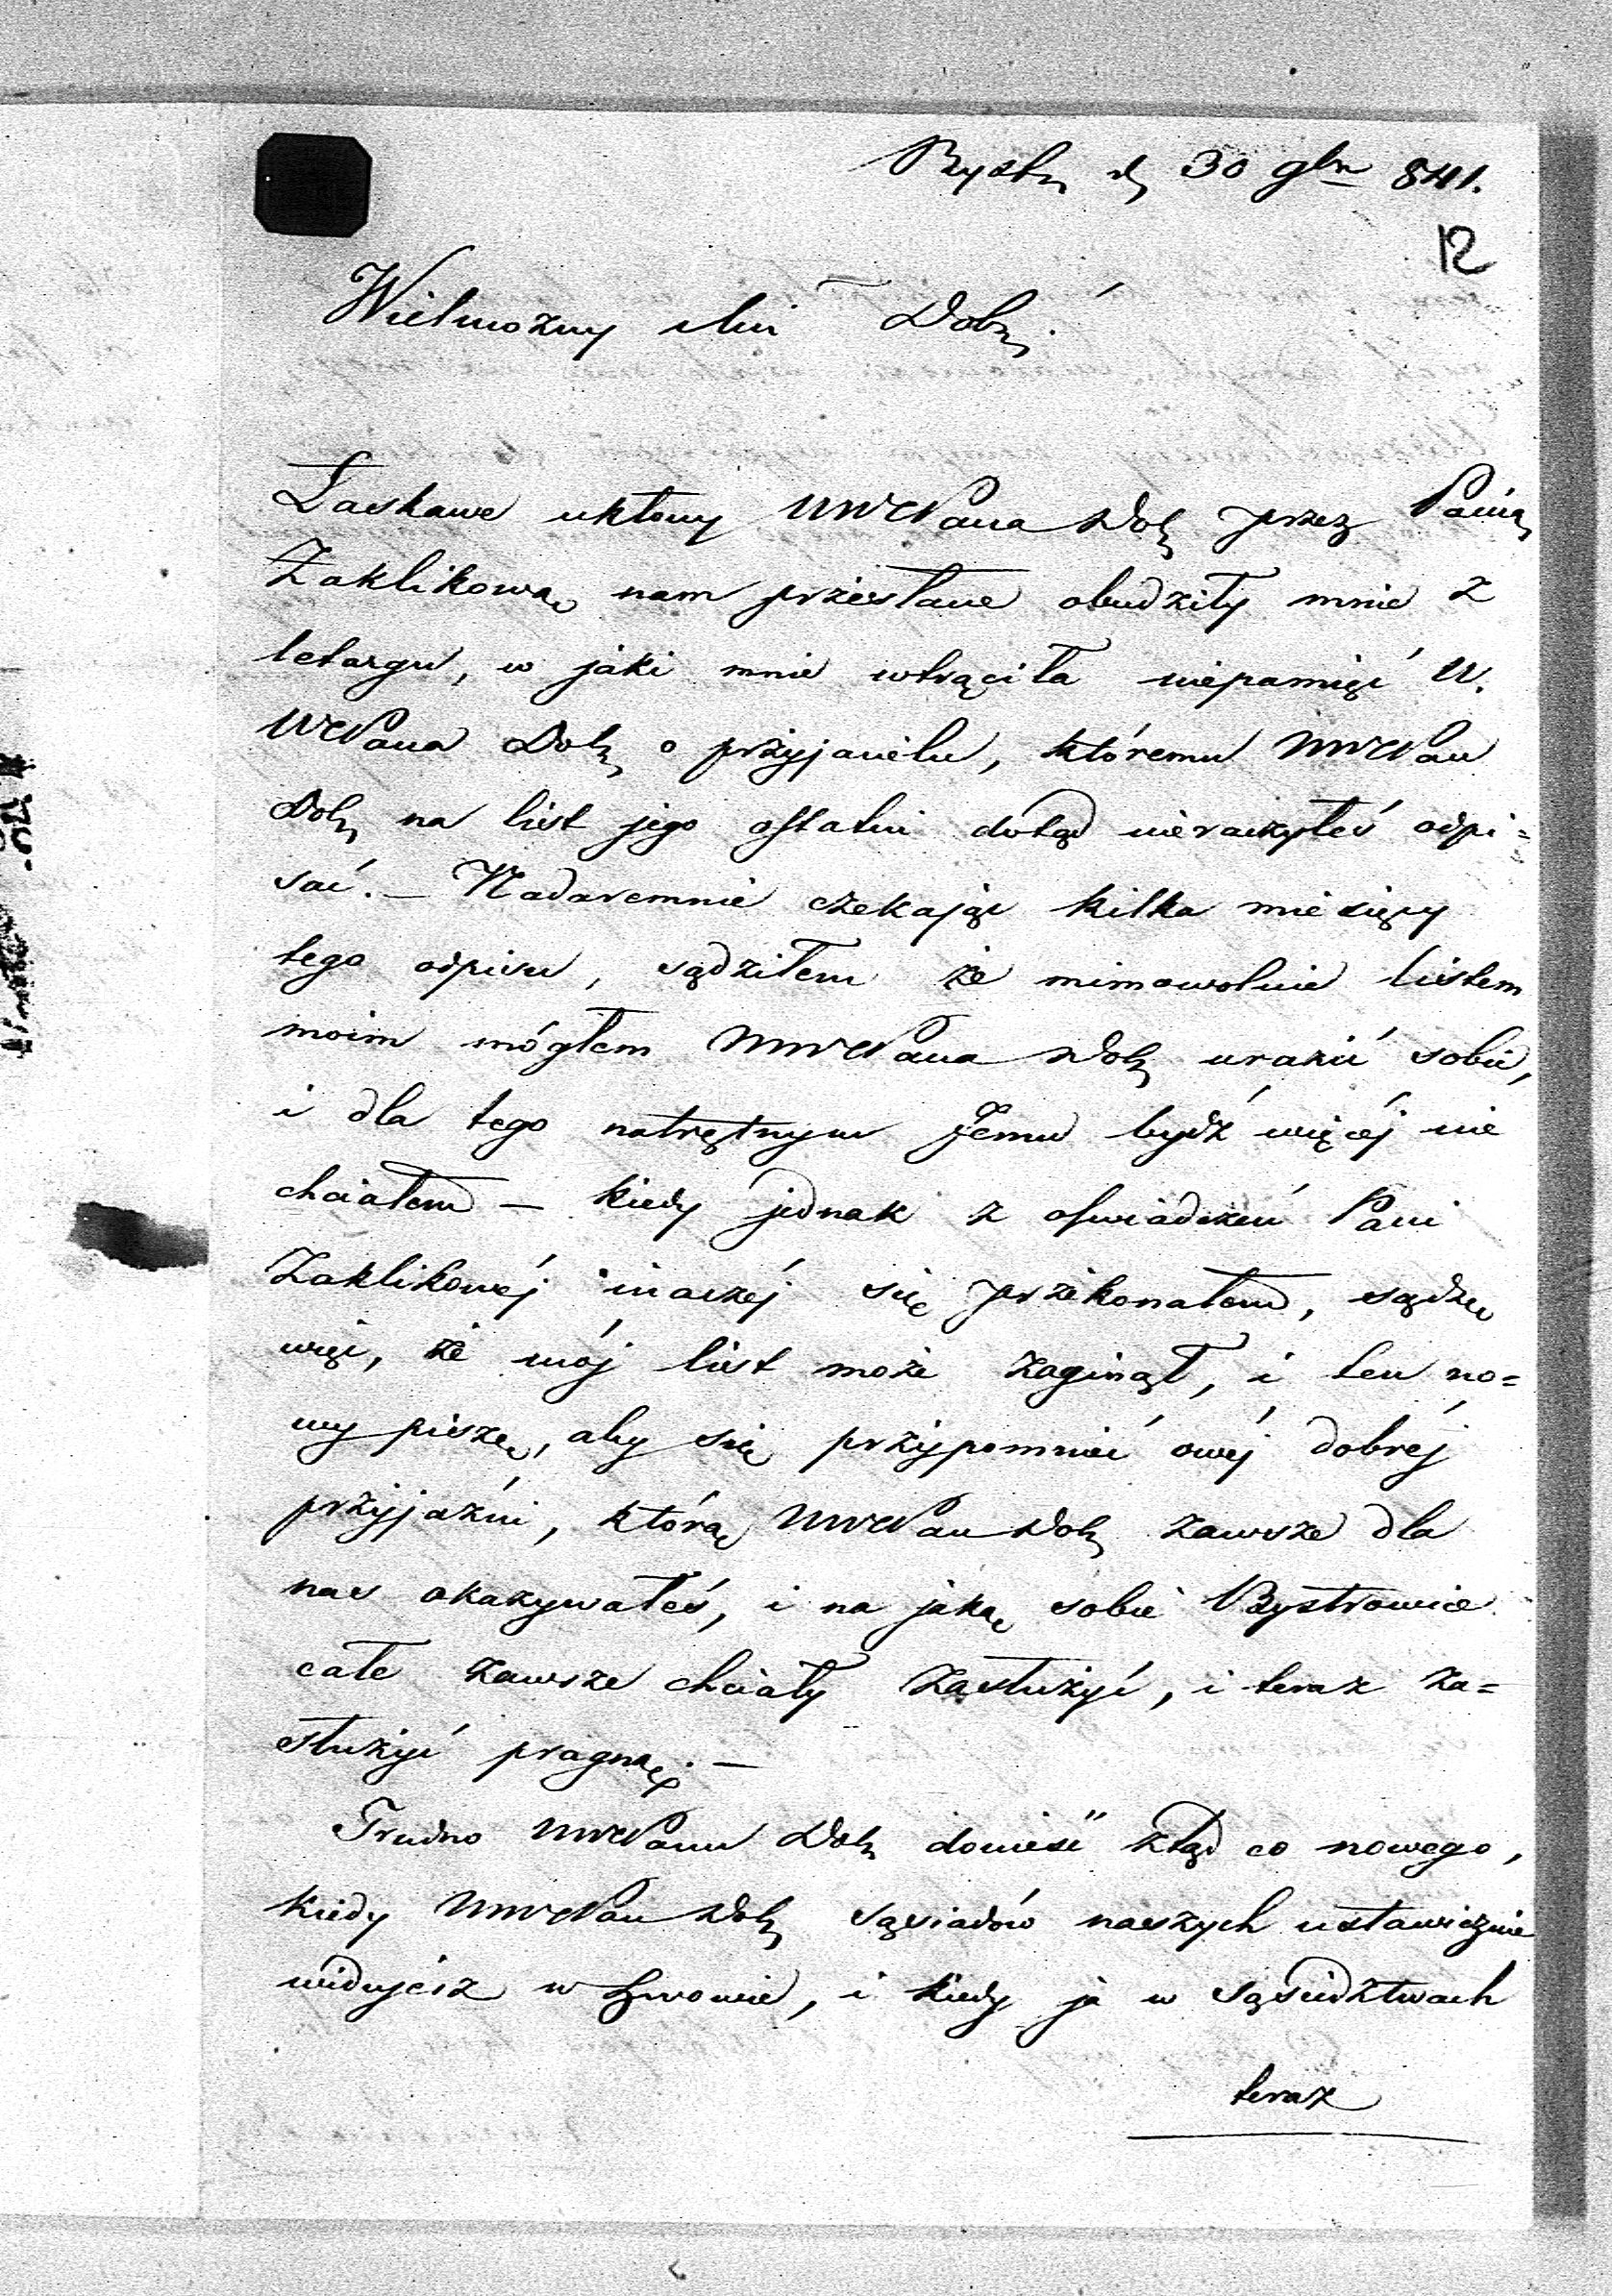 d 30 9br 841.
12
Wielmożny Mci Dobr.
Łaskawe ukłony WWMPana Dobr przez Panią
Zaklikową nam przesłane obudziły mnie z
letargu, w jaki mnie wtrąciła niepamięć W.
WMPana Dobr o przyjacielu, któremu WWMPan
Dobr na list jego ostatni dotąd nieraczyłeś odpi=
sać. — Nadaremnie czekając kilka miesięcy
tego odpisu, sądziłem że mimowolnie listem
moim mógłem WWMPana Dobr urazić sobie,
i dla tego natrętnym Jemu bydź więcéj nie
chciałem — kiedy jednak z oświadczeń Pani
Zaklikowéj inaczéj się przekonałem, sądzę
więc, że mój list może zaginął, i ten no=
wy piszę, aby się przypomnieć owéj dobréj
przyjaźni, którą WWMPan Dobr zawsze dla
nas okazywałeś, i na jaką sobie Bystrowice
całe zawsze chciały zasłużyć, i teraz za=
służyć pragną. —
Trudno WWMPanu Dobr donieść ztąd co nowego,
kiedy WWMPan Dobr sąsiadów naszych ustawicznie
widujesz w Lwowie, i kiedy ja w sąsiedztwach
teraz